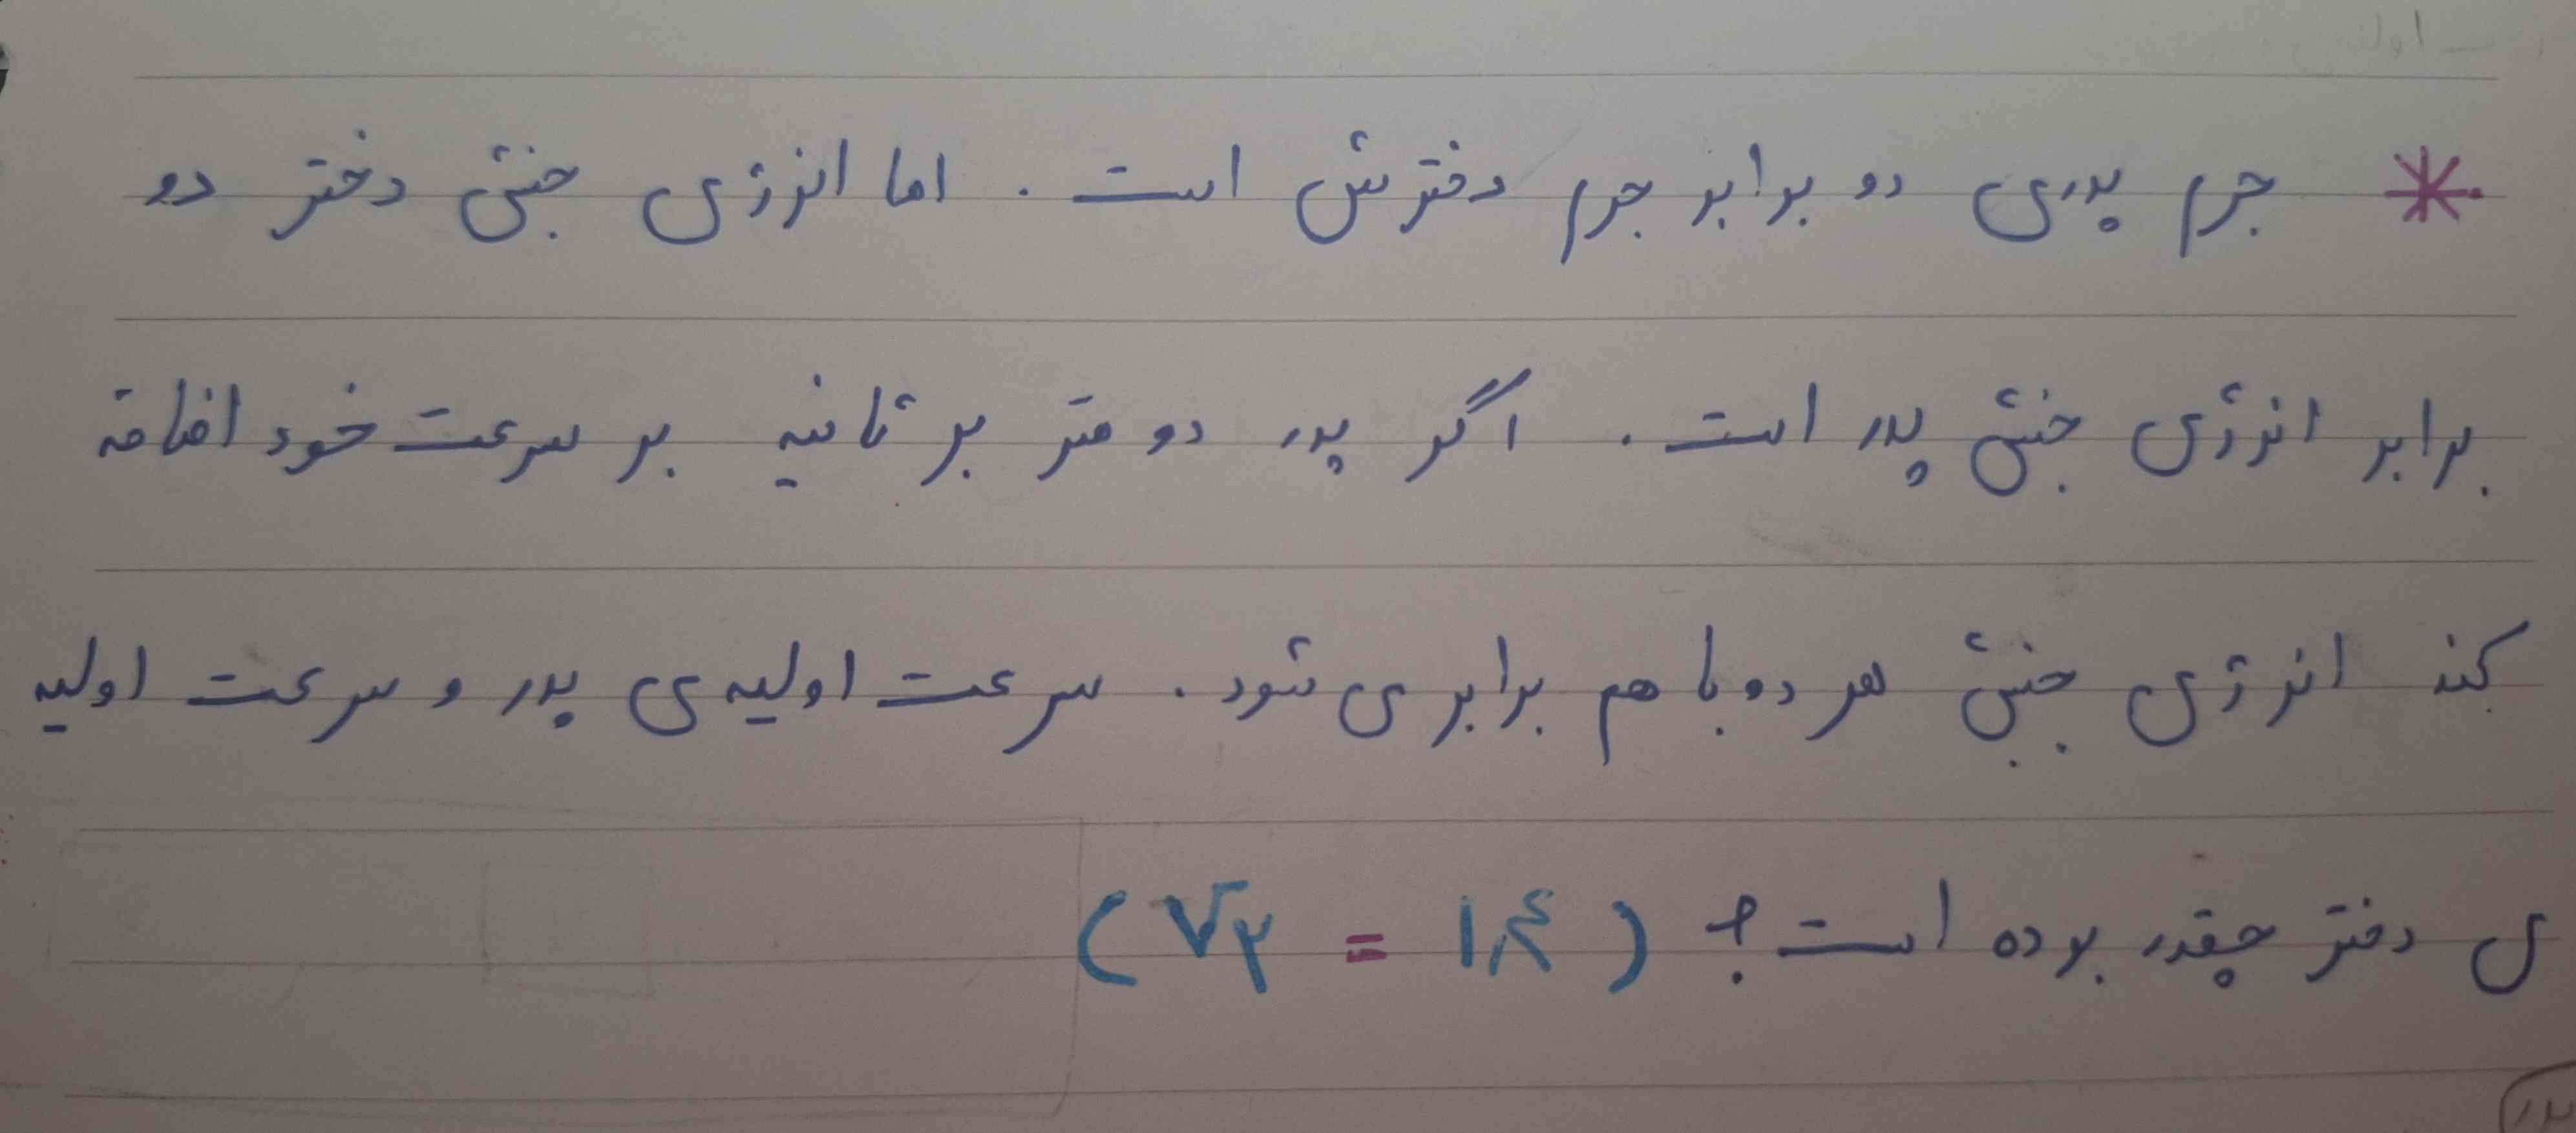 * جرم پدری دو برابر جرم دخترش است . اما انرژی جنبشی دختر دو
برابر انرژی جنبشی پدر است . اگر پدر دو متر بر ثانیه بر سرعت خود اضافه
کند انرژی جنبشی هر دو با هم برابر می شود . سرعت اولیه ی پدر و سرعت اولیه
ی دختر چقدر بوده است ؟ ( √۲ = ۱٫۴ )
پدر